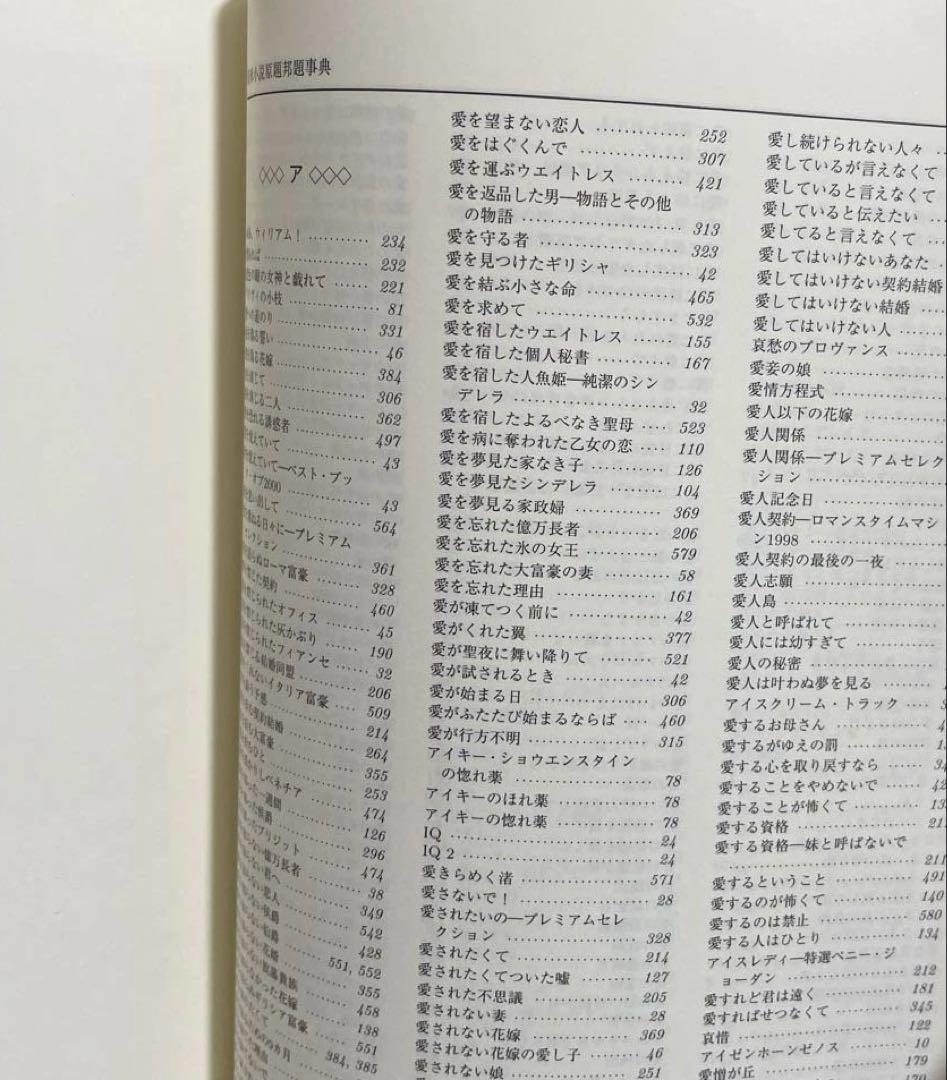 小説原題邦題事典
◇◇◇ ア ◇◇◇
ウィリアム！ ………… 234
………… 232
の瞳の女神と戯れて …… 221
の小枝 ………… 81
のり ………… 331
誓い ………… 46
花嫁 ………… 384
じて ………… 306
じる二人 ………… 362
れる誘惑者 ………… 497
えていて ………… 43
えていて―ベスト・ブッ
・オブ2000 ………… 43
い出して ………… 564
ねる日々に―プレミアム
レクション ………… 361
らぬローマ富豪 ………… 328
じた契約 ………… 460
じられたオフィス ………… 45
じられた灰かぶり ………… 190
じられたフィアンセ …… 32
る結婚同盟 ………… 206
ないイタリア富豪 …… 509
予感 ………… 214
契約結婚 ………… 264
大富豪 ………… 355
ひと ………… 253
りしベネチア ………… 474
一週間 ………… 126
侯爵 ………… 296
ブリジット ………… 474
ない億万長者 ………… 38
ない君へ ………… 349
ない恋人 ………… 542
ない侯爵 ………… 428
ない伯爵 ………… 551, 552
ない花婿 ………… 355
貴族 ………… 458
かった花嫁 ………… 138
ギリシア富豪 ………… 551
カ月 ………… 384, 385
愛を望まない恋人 ………… 252
愛をはぐくんで ………… 307
愛を運ぶウエイトレス ………… 421
愛を返品した男―物語とその他
の物語 ………… 313
愛を守る者 ………… 323
愛を見つけたギリシャ ………… 42
愛を結ぶ小さな命 ………… 465
愛を求めて ………… 532
愛を宿したウエイトレス …… 155
愛を宿した個人秘書 ………… 167
愛を宿した人魚姫―純潔のシン
デレラ ………… 32
愛を宿したよるべなき聖母 …… 523
愛を病に奪われた乙女の恋 …… 110
愛を夢見た家なき子 ………… 126
愛を夢見たシンデレラ ………… 104
愛を夢見る家政婦 ………… 369
愛を忘れた億万長者 ………… 206
愛を忘れた氷の女王 ………… 579
愛を忘れた大富豪の妻 ………… 58
愛を忘れた理由 ………… 161
愛が凍てつく前に ………… 42
愛がくれた翼 ………… 377
愛が聖夜に舞い降りて ………… 521
愛が試されるとき ………… 42
愛が始まる日 ………… 306
愛がふたたび始まるならば …… 460
愛が行方不明 ………… 315
アイキー・ショウエンスタイン
の惚れ薬 ………… 78
アイキーのほれ薬 ………… 78
アイキーの惚れ薬 ………… 78
IQ ………… 24
IQ 2 ………… 24
愛きらめく渚 ………… 571
愛さないで！ ………… 28
愛されたいの―プレミアムセレ
クション ………… 328
愛されたくて ………… 214
愛されたくてついた嘘 ………… 127
愛された不思議 ………… 205
愛されない妻 ………… 28
愛されない花嫁 ………… 369
愛されない花嫁の愛し子 ……… 46
愛されない娘 ………… 251
愛し続けられない人々 …
愛しているが言えなくて
愛していると言えなくて
愛していると伝えたい ……
愛してると言えなくて ……
愛してはいけないあなた …
愛してはいけない契約結婚
愛してはいけない結婚 ……
愛してはいけない人 ………
哀愁のプロヴァンス ………
愛妾の娘 …………
愛情方程式 …………
愛人以下の花嫁 …………
愛人関係 …………
愛人関係―プレミアムセレク
ション …………
愛人記念日 …………
愛人契約―ロマンスタイムマシ
ン1998 …………
愛人契約の最後の一夜 ………
愛人志願 …………
愛人島 …………
愛人と呼ばれて …………
愛人には幼すぎて …………
愛人の秘密 …………
愛人は叶わぬ夢を見る ………
アイスクリーム・トラック ……
愛するお母さん …………
愛するがゆえの罰 …………
愛する心を取り戻すなら ……
愛することをやめないで ……
愛することが怖くて …………
愛する資格 …………
愛する資格―妹と呼ばないで
………… 211
愛するということ ………… 491
愛するのが怖くて ………… 140
愛するのは禁止 ………… 580
愛する人はひとり ………… 134
アイスレディ―特選ペニー・ジ
ョーダン ………… 212
愛すれど君は遠く ………… 181
愛すればせつなくて ………… 345
哀惜 ………… 122
アイゼンホーンゼノス ………… 10
愛憎が丘 ………… 179